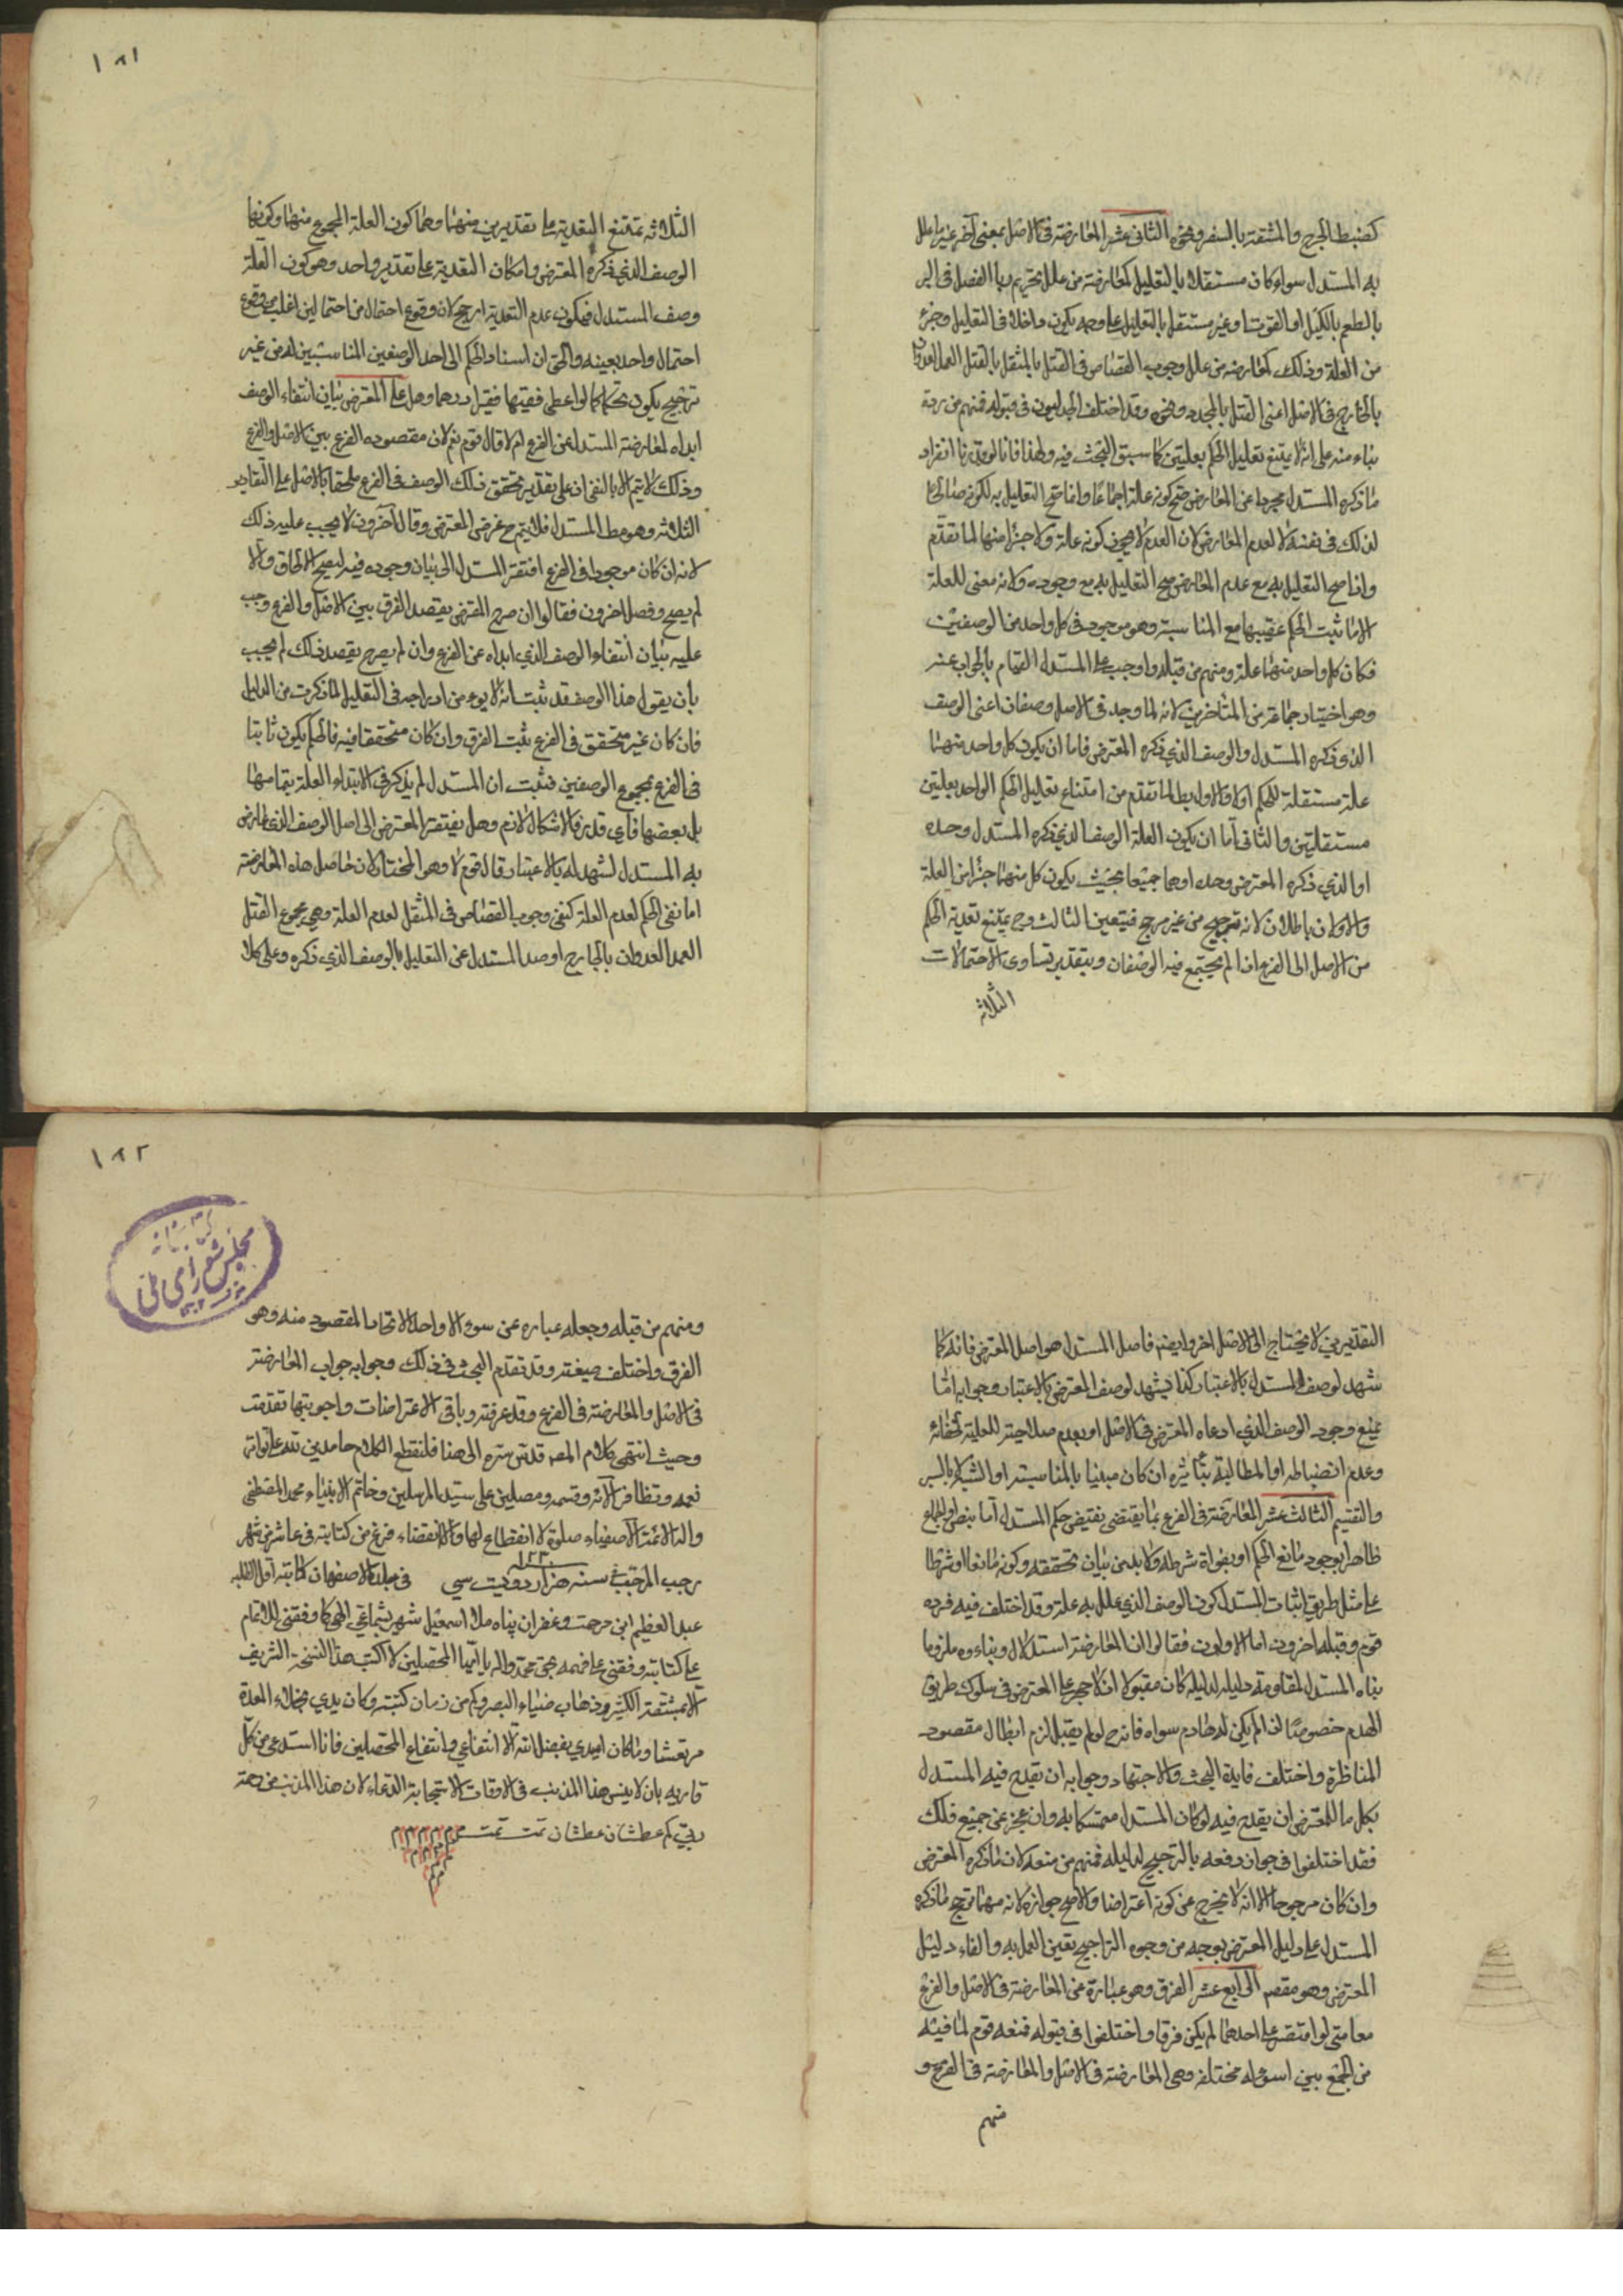 كضبط الحرج والمشقة بالسفر ونحوه الثانى عشر المعارضة فى الاصل بمعنى آخر غير ما علل
به المستدل سواء كان مستقلا بالتعليل كمعارضة من علل تحريم ربا الفضل فى البر
بالطعم بالكيل او القوت او غير مستقل بالتعليل على وجه يكون داخلا فى التعليل وجزء
من العلة وذلك كمعارضة من علل وجوب القصاص فى القتل بالمثقل بالقتل العمد العدوان
بالجارح فى الاصل اعنى القتل بالمحدد ونحوه وقد اختلف الجدليون فى قبوله فمنهم من رده
بناء منه على انه لا يمتنع تعليل الحكم بعلتين كما سبق البحث فيه ولهذا فانا لو قدرنا انفراد
ما ذكره المستدل مجردا عن المعارض صح كونه علة اجماعا واذا صح التعليل به لكونه صالحا
لذلك فى نفسه لا لعدم المعارض لان العدم لا يجوز كونه علة ولا جزأ منها لما تقدم
واذا صح التعليل به مع عدم المعارض صح التعليل به مع وجوده ولانه معنى للعلة
الا ما ثبت الحكم عقيبها مع المناسبة وهو موجود فى كل واحد من الوصفين
فكان كل واحد منهما علة ومنهم من قبله واوجب على المستدل القيام بالجواب عنه
وهو اختيار جماعة من المتاخرين لانه لما وجد فى الاصل وصفان اعنى الوصف
الذى ذكره المستدل والوصف الذى ذكره المعترض فاما ان يكون كل واحد منهما
علة مستقلة للحكم اولا والاول باطل لما تقدم من امتناع تعليل الحكم الواحد بعلتين
مستقلتين والثانى اما ان يكون العلة الوصف الذى ذكره المستدل وحده
او الذي ذكره المعترض وحده او هما جميعا بحيث يكون كل منهما جزأ من العلة
والاولان باطلان لانه ترجيح من غير مرجح فيتعين الثالث وح يمتنع تعدية الحكم
من الاصل الى الفرع اذا لم يجتمع فيه الوصفان وبتقدير تساوى الاحتمالات
الثلاثه
١٨١
الثلاثه تمتنع التعدية على تقديرين منهما وهما كون العلة المجموع منهما وكونها
الوصف الذي ذكره المعترض وامكان التعدية على تقدير واحد وهو كون العلة
وصف المستدل فيكون عدم التعدية ارجح لان وقوع احتمال من احتمالين اغلب من وقوع
احتمال واحد بعينه والحق ان اسناد الحكم الى احد الوصفين المناسبين له من غير
ترجيح يكون تحكما كما لو اعطى فقيها فقيرا درهما وهل على المعترض بيان انتفاء الوصف
ابداه لمعارضة المستدل عن الفرع ام لا قال قوم نعم لان مقصوده الفرع بين الاصل والفرع
وذلك لا يتم الا بالنفى اذ على تقدير تحقق ذلك الوصف فى الفرع ملحقا بالاصل على التقادير
الثلاثه وهو مط المستدل فلا يتم ح غرض المعترض وقال آخرون لا يجب عليه ذلك
لانه ان كان موجودا فى الفرع افتقر المستدل الى بيان وجوده فيه ليصح الالحاق والا
لم يصح وفصل اخرون فقالوا ان صرح المعترض بقصد الفرق بين الاصل والفرع وجب
عليه بيان انتفاء الوصف الذي ابداه عن الفرع وان لم يصرح بقصد ذلك لم يجب
بأن يقول هذا الوصف قد ثبت انه لا بد من ادراجه فى التعليل لما ذكرت من الدليل
فان كان غير متحقق فى الفرع ثبت الفرق وان كان متحققا فيه فالحكم يكون ثابتا
فى الفرع بمجموع الوصفين فثبت ان المستدل لم يذكر فى الابتداء العلة بتمامها
بل بعضها فأى قدر فالاشكال لازم وهل يفتقر المعترض الى اصل الوصف الذى عارض
به المستدل لشهد له بالاعتبار قال قوم لا وهو المختار لان حاصل هذه المعارضة
اما نفى الحكم لعدم العلة كنفى وجوب القصاص فى المثقل لعدم العلة وهي مجموع القتل
العمد العدوان بالجارح او صد المستدل عن التعليل بالوصف الذي ذكره وعلى كلا
التقديرين لا يحتاج الى الاصل اخر وايضا فاصل المستدل هو اصل المعترض فانه كما
شهد لوصف المستدل بالاعتبار كذا يشهد لوصف المعترض بالاعتبار وجوابه اما
بمنع وجود الوصف الذي ادعاه المعترض فى الاصل او بعدم صلاحيته للعلية لخفائه
وعدم انضباطه او المطالبة بتأثيره ان كان مبنيا بالمناسبة او الشبه لا بالسبر
والتقسيم الثالث عشر المعارضة فى الفرع بما يقتضى نقيض حكم المستدل اما بنص او اجماع
ظاهر او بوجود مانع الحكم او بفوات شرطه ولا بد من بيان تحققه وكونه مانعا او شرطا
على مثل طريق اثبات المستدل كون الوصف الذى علل به علة وقد اختلف فيه فرده
قوم وقبله اخرون اما الاولون فقالوا ان المعارضة استدلال وبناء وه ملزوما
بناه المستدل لمقاومة دليله لدليله كان مقبولا اذ لا حجر على المعترض فى سلوك طريق
الهدم خصوصا اذا لم يكن له هادم سواه فانه ح لو لم يقبل لزم ابطال مقصود
المناظرة واختلف فايدة البحث والاجتهاد وجوابه ان يقدح فيه المستدل
بكل ما للمعترض ان يقدح فيه لو كان المستدل متمسكا به وان عجز عن جميع ذلك
فقد اختلفوا فى جواز دفعه بالترجيح لدليله فمنهم من منعه لان ما ذكره المعترض
وان كان مرجوحا الا انه لا يخرج عن كونه اعتراضا والاصح جوازه لانه مهما ترجح ما ذكره
المستدل على دليل المعترض بوجه من وجوه التراجيح تعين العمل به والغاء دليل
المعترض وهو مقصم الرابع عشر الفرق وهو عبارة عن المعارضة فى الاصل والفرع
معا حتى لو اقتصر على احدهما لم يكن فرقا واختلفوا فى قبوله فمنعه قوم لما فيه
من الجمع بين اسؤله مختلفه وهى المعارضة فى الاصل والمعارضة فى الفرع و
منهم
١٨٢
كتابخانه
مجلس شوراى ملى
ومنهم من قبله وجعله عباره عن سوء الا واحد لاتحاد المقصود منه وهو
الفرق واختلف صيغته وقد تقدم البحث فى ذلك وجوابه جواب المعارضة
فى الاصل والمعارضة فى الفرع وقد عرفته وباقى الاعتراضات واجوبتها تقدمت
وحيث انتهى كلام المصـ قدس سره الى هنا فلنقطع الكلام حامدين لله على تواتر
نعمه وتظافر آلائه وقسمه ومصلين على سيد المرسلين وخاتم الانبياء محمد المصطفى
واله الائمة الاصفياء صلوة لا انقطاع لها ولا انقضاء فرغ من كتابته فى عاشر شهر
رجب المرجب سنه هزار دويست سي ١٢٣٠ فى بلدة الاصفهان كاتبه اقل الطلبه
عبد العظيم ابن رحمت وغفران پناه ملا اسمعيل شهريشماغي الهى كما وفقنى للاتمام
على كتابته وفقنى على فهمه بحق محمد واله يا ايها المحصلين لا اكتب هذا النسخة الشريف
الا بمشقة الكثير وذهاب ضياء البصر وكم من زمان كتبته وكان يدي بخلاء المعدة
مرتعشا وما كان اميدي بفضل الله الا انتفاعي وانتفاع المحصلين فانا استدعى من كل
قاريه بان لا ينسى هذا المذنب فى الاوقات الاستجابة الدعاء لان هذا المذنب من رحمة
ربى كم عطشان عطشان تمت تمت م م م م م م
م م م م
م م